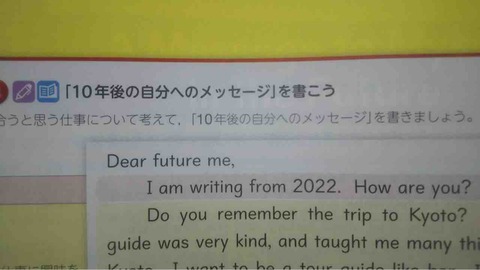 「10年後の自分へのメッセージ」を書こう
合うと思う仕事について考えて，「10年後の自分へのメッセージ」を書きましょう。
Dear future me,
I am writing from 2022. How are you?
Do you remember the trip to Kyoto?
guide was very kind, and taught me many thi
Kyoto. I want to be a tour guide like her. I